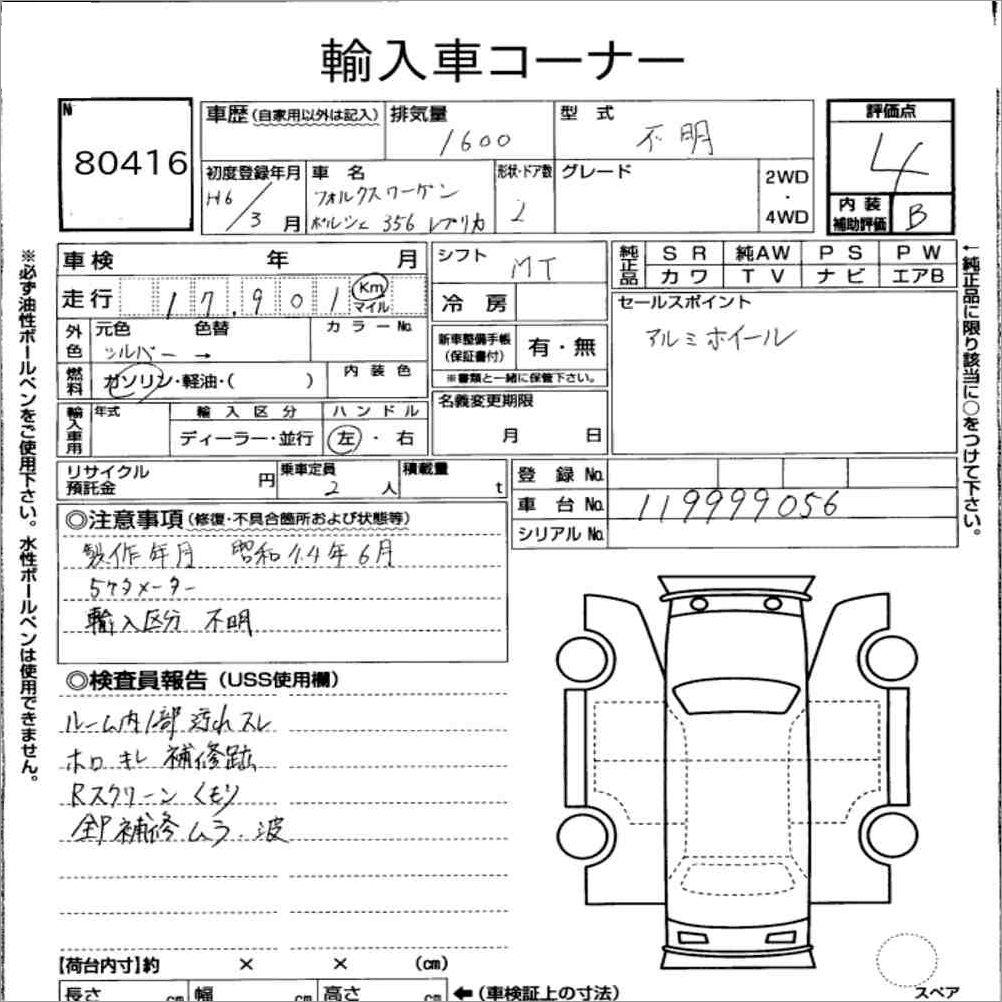 輸入車コーナー
No.
80416
車歴 (自家用以外は記入)
排気量
1600
型式
不明
評価点
4
初度登録年月
H6/3月
車名
フォルクスワーゲン
ポルシェ 356 レプリカ
形状・ドア数
2
グレード
2WD
・
4WD
内装
補助評価
B
車検 年 月
シフト
MT
純正品
SR 純AW PS PW
カワ TV ナビ エアB
走行 17,901 Km
マイル
冷房
セールスポイント
アルミホイール
外色
元色 色替
シルバー →
カラーNo.
新車整備手帳
(保証書付)
有・無
※書類と一緒に保管下さい。
燃料
ガソリン・軽油・( )
内装色
名義変更期限
月 日
輸入車用
年式
輸入区分
ディーラー・並行
ハンドル
左・右
リサイクル
預託金
円
乗車定員
2人
積載量
t
登録No.
車台No.
119999056
シリアルNo.
◎注意事項 (修復・不具合箇所および状態等)
製作年月 昭和44年6月
5ケタメーター
輸入区分 不明
◎検査員報告 (USS使用欄)
ルーム内1部汚れスレ
ホロキレ補修跡
Rスクリーンくもり
全P補修ムラ・波
【荷台内寸】約 × × (cm)
長さ cm 幅 cm 高さ cm
←(車検証上の寸法)
スペア
※必ず油性ボールペンをご使用下さい。水性ボールペンは使用できません。
←純正品に限り該当に○をつけて下さい。